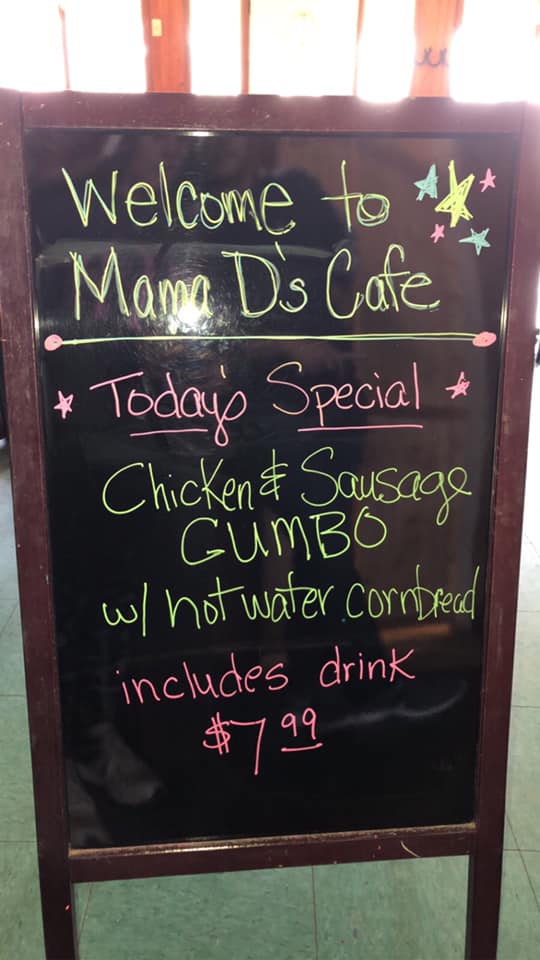 Welcome to
Mama D's Cafe
Today's Special
Chicken & Sausage
GUMBO
w/ hot water cornbread
includes drink
$7 99